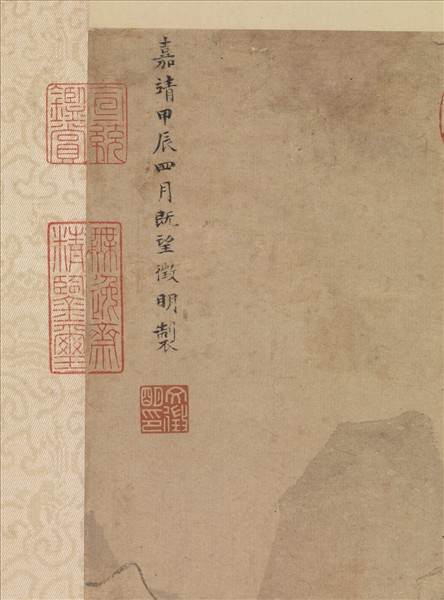 嘉靖甲辰四月既望徵明製
文徵明印
宣統鑒賞
無逸齋精鑒璽